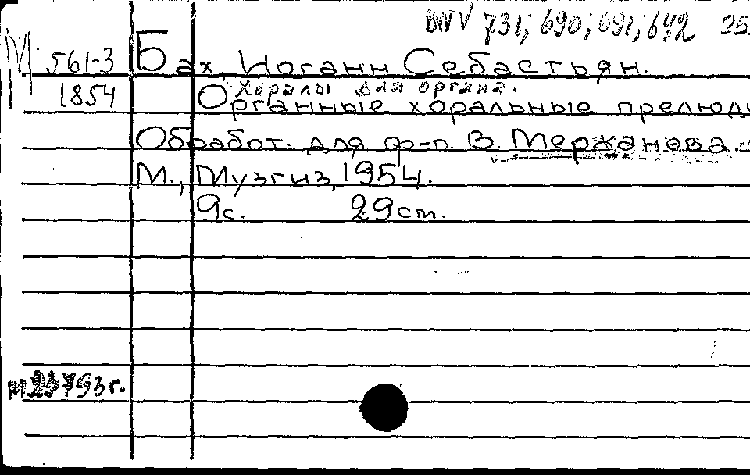 WV 731; 690; 691, 642 25
М 561-3 Бах Иоганн Себастьян.
1854 Хоралы для органа.
Органные хоральные прелюд
Обработ. для ф-п В. Мержанова
М., Музгиз, 1954.
9с. 29ст.